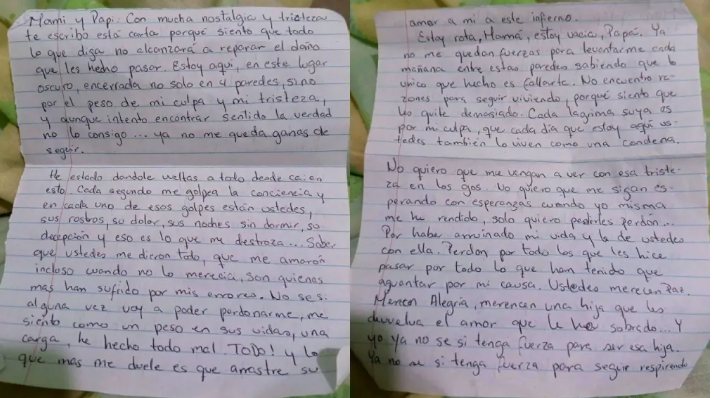 Mami y Papi: Con mucha nostalgia y tristeza
te escribo está carta porque siento que todo
lo que diga no alcanzará a reparar el daño
que les hecho pasar. Estoy aquí, en este lugar
oscuro, encerrada no solo en 4 paredes, sino
por el peso de mi culpa y mi tristeza,
y aunque intento encontrar sentido la verdad
no lo consigo... ya no me queda ganas de
seguir.
He estado dandole vueltas a todo desde cai en
esto. Cada segundo me golpea la conciencia y
en cada uno de esos golpes están ustedes,
sus rostros, su dolor, sus noches sin dormir, su
decepción y eso es lo que me destroza... Saber
que ustedes me dieron todo, que me amaron
incluso cuando no lo merecia, son quienes
mas han sufrido por mis errores. No se si
alguna vez voy a poder perdonarme, me
siento como un peso en sus vidas, una
carga, he hecho todo mal TODO! y lo
que mas me duele es que arrastre su
amor a mi a este infierno.
Estoy rota, Mamá, estoy vacia, Papá. Ya
no me quedan fuerzas para levantarme cada
mañana entre estas paredes sabiendo que lo
unico que hecho es fallarte. No encuentro ra-
zones para seguir viviendo, porque siento que
les quite demasiado. Cada lagrima suya es
por mi culpa, que cada dia que estoy aqui us-
tedes tambien lo viven como una condena.
No quiero que me vengan a ver con esa triste-
za en los ojos. No quiero que me sigan es-
perando con esperanzas cuando yo misma
me he rendido, solo quiero pedirles perdón...
Por haber arruinado mi vida y la de ustedes
con ella. Perdon por todo los que les hice
pasar por todo lo que han tenido que
aguantar por mi causa. Ustedes merecen Paz.
Merecen Alegria, merencen una hija que les
devuelva el amor que le ha sobrado... Y
yo ya no se si tenga fuerza para ser esa hija.
Ya no se si tenga fuerza para seguir respirando